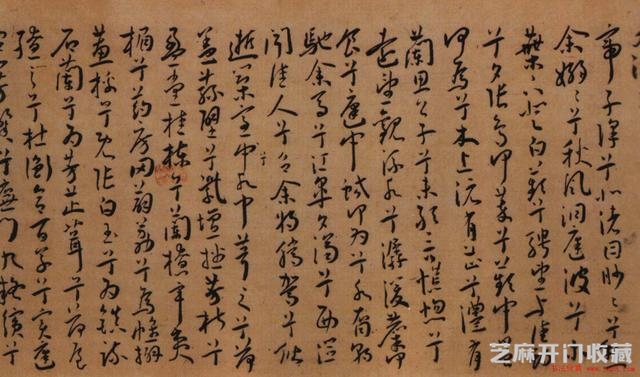 帝子降兮北渚目眇眇兮愁
余嫋嫋兮秋風洞庭波兮木
葉下登白薠兮騁望與佳期
兮夕張鳥何萃兮蘋中罾
何爲兮木上沅有芷兮澧有
蘭思公子兮未敢言慌惚兮
遠望觀流水兮潺湲麋何
食兮庭中蛟何爲兮水裔朝
馳余馬兮江皋夕濟兮西澨
聞佳人兮召余將騰駕兮偕
逝築室兮水中葺之兮荷
蓋蓀壁兮紫壇播芳椒兮
盈堂桂棟兮蘭橑辛夷
楣兮葯房罔薜荔兮爲帷擗
蕙櫋兮既張白玉兮爲鎮疏
石蘭兮爲芳芷葺兮荷屋
繚之兮杜衡合百草兮實庭
建芳馨兮廡門九嶷繽兮
芝麻开门收藏